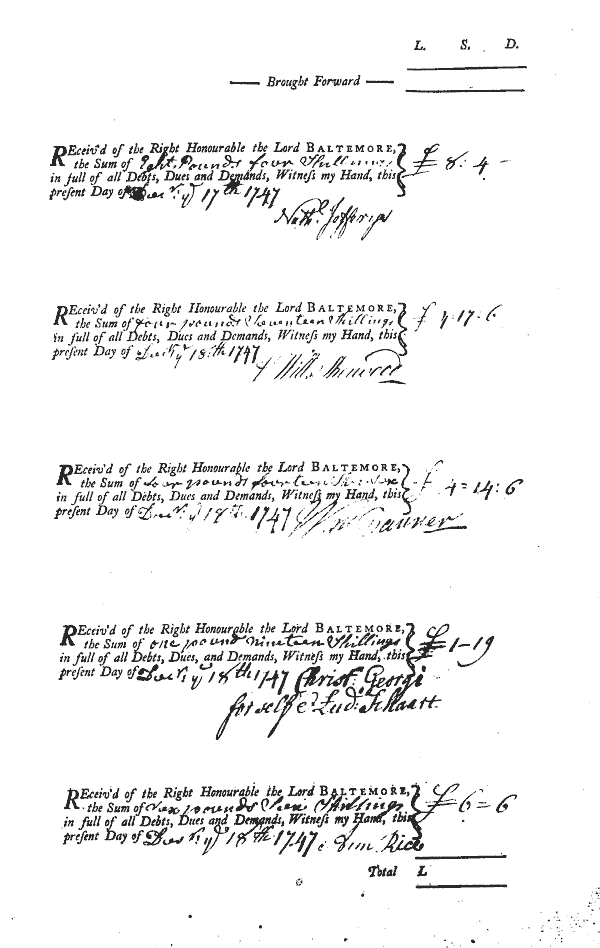 L. S. D.
Brought Forward
REceiv'd of the Right Honourable the Lord BALTEMORE,
the Sum of Eght Pounds four Shillings £ 8: 4 -
in full of all Debts, Dues and Demands, Witness my Hand, this
present Day of 17th 1747
REceiv'd of the Right Honourable the Lord BALTEMORE,
the Sum of four pounds Seventeen Shillings £ 4-17-6
in full of all Debts, Dues and Demands, Witness my Hand, this
present Day of 18th 1747
REceiv'd of the Right Honourable the Lord BALTEMORE,
the Sum of four pounds fourteen £ 4=14:6
in full of all Debts, Dues and Demands, Witness my Hand, this
present Day of 18th 1747
REceiv'd of the Right Honourable the Lord BALTEMORE,
the Sum of one pound nineteen Shillings £1-19
in full of all Debts, Dues, and Demands, Witness my Hand, this
present Day of 18th 1747 Christ: Georgi
for self & Lud: Schaart
REceiv'd of the Right Honourable the Lord BALTEMORE,
the Sum of Six pounds Six Shillings £6=6
in full of all Debts, Dues, and Demands, Witness my Hand, this
present Day of 18th 1747 Rice
Total L